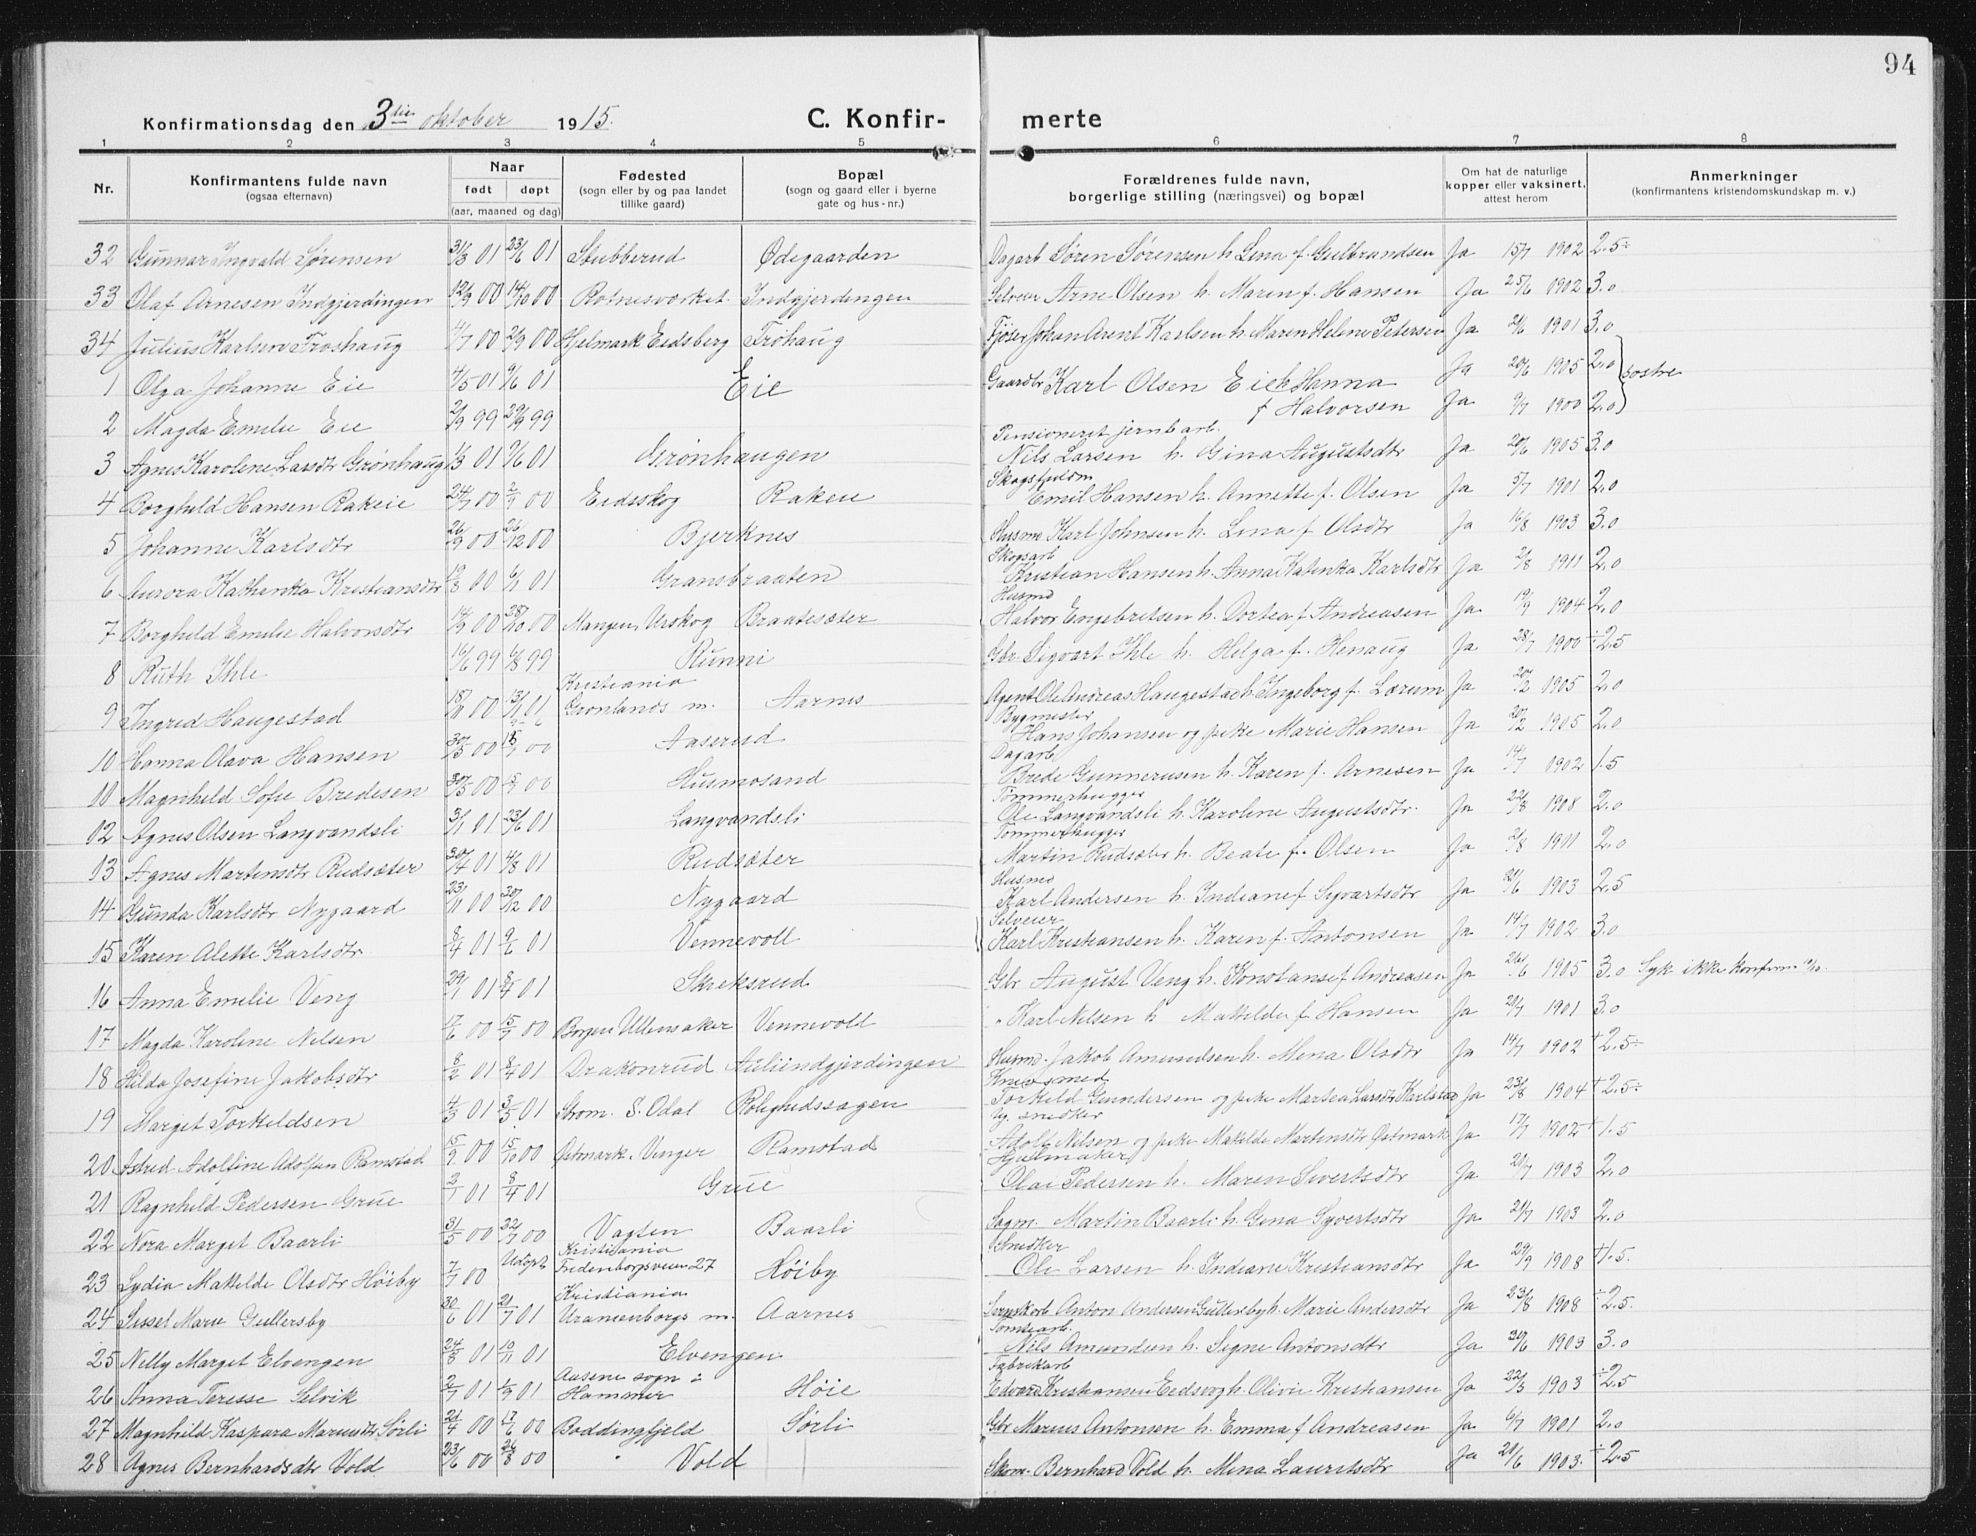 94
Konfirmationsdag den 3die oktober 1915.
C. Konfirmerte
1 2 3 4 5 6 7 8
Nr. Konfirmantens fulde navn (ogsaa efternavn) Naar født døpt (aar, maaned og dag) Fødested (sogn eller by og paa landet tillike gaard) Bopæl (sogn og gaard eller i byerne gate og hus-nr.) Forældrenes fulde navn, borgerlige stilling (næringsvei) og bopæl Om hat de naturlige kopper eller vaksinert, attest herom Anmerkninger (konfirmantens kristendomskundskap m. v.)
32 Gunnar Ingvald Sørensen 31/3 01 23/6 01 Stubberud Ødegaarden Dagarb Søren Sørensen h. Lina f. Gulbrandsen Ja 15/7 1902 2.5÷
33 Olaf Arnesen Indgjerdingen 12/9 00 14/10 00 Rotnesværket Indgjerdingen Selveier Arne Olsen h. Maren f. Hansen Ja 25/6 1902 3.0
34 Julius Karlsen Froshaug 4/7 00 2/9 00 Hjelmark Eidsberg Frohaug Fjøser Johan Arent Karlsen h. Maren Helene Petersen Ja 2/6 1901 3.0
1 Olga Johanne Eie 4/5 01 9/6 01 Eie Gaardbr Karl Olsen Eie h. Hanna f Halvorsen Ja 20/6 1905 2.0 søstre
2 Magda Emelie Eie 2/9 99 29/9 99 Ja 9/7 1900 2.0
3 Agnes Karolene Larsdtr Grønhaug 1/3 01 9/6 01 Grønhaugen Pensioneret jernb arb. Nils Larsen h. Gina Augustsdtr Ja 20/6 1905 3.0
4 Borghild Hansen Rakeie 24/7 00 2/9 00 Eidsskog Rakeie Emil Hansen h. Annette f. Olsen Ja 5/7 1901 2.0
5 Johanne Karlsdtr 26/9 00 26/12 00 Bjerknes Husm Karl Johnsen h. Lina f Olsdtr Ja 16/8 1903 3.0
6 Aurora Kathenka Kristiansdtr 19/8 00 6/1 01 Gransbraaten Skogsarb Kristian Hansen h. Anna Katenka Karlsdtr Ja 2/8 1911 2.0
7 Borghild Emelie Halvorsdtr 14/9 00 28/10 00 Mangen, Urskog Braatesæter Husmd Halvor Engebretsen h. Dortea f Andreasen Ja 19/9 1904 2.0
8 Ruth Ihle 16/6 99 6/8 99 Runni Gbr Sigvart Ihle h. Helga f. Henaug Ja 28/7 1900 ÷2.5
9 Ingrid Haugestad 18/11 00 13/1 01 Kristiania Grønlands m. Aarnes Agent Ole Andreas Haugestad h. Ingeborg f. Lærum Ja 20/2 1905 2.0
10 Hanna Olava Hansen 30/5 00 15/7 00 Aaserud Bygmester Hans Johansen og pike Marie Hansen Ja 20/2 1905 2.0
10 Magnhild Sofie Bredesen 30/5 00 Husmosand Dagarb Brede Gunnerusen h. Karen f. Arnesen Ja 14/7 1902 1.5
02 Agnes Olsen Langvandsli 3/1 01 23/6 01 Langvandsli Tømmerhugger Ole Langvandsli h. Karoline Augustsdtr. Ja 22/8 1908 2.0
13 Agnes Martensdtr Rudsæter 30/4 01 4/8 01 Rudsæter Tømmerhugger Martin Rudsæter h. Beate f. Olsen Ja 2/8 1911 2.0
14 Gunda Karlsdtr Nygaard 23/11 00 30/12 00 Nygaard Husmd Karl Andersen h. Indiane f Syvartsdtr Ja 21/6 1903 2.5
15 Karen Alette Karlsdtr 8/4 01 9/6 01 Vennevoll Selveier Karl Kristiansen h. Karen f. Antonsen Ja 14/7 1902 3.0
16 Anna Emelie Veng 29/1 01 8/4 01 Skreksrud Gbr August Veng h. Konstanse f Andreasen Ja 26/6 1905 3.0 Syk ikke konfirm
17 Magda Karoline Nilsen 17/6 00 15/7 00 Borgen Ullensaker Vennevoll " Karl Nilsen h Matilde f. Hansen Ja 20/7 1901 3.0
18 Hilda Josefine Jakobsdtr 8/2 01 8/4 01 Drakonrud Auliindgjerdingen Husmd. Jakob Amundsen h. Mina Olsdtr Ja 14/7 1902 +2.5÷
19 Marget Torkeldsen 4/3 01 3/5 01 Strøm. S. Odal Rolighedssagen Torkeld Gundersen og pike Martea Larsdtr Karlstad Ja 23/8 1904 +2.5÷
20 Astrid Adolfine Adolfsen Ramstad 15/9 00 15/10 00 Østmark. Vinger Ramstad Ug. snedker Adolf Nilsen og pike Matilde Martensdtr Østmark Ja 17/7 1902 +1.5
21 Ragnhild Pedersen Grue 2/1 01 8/4 01 Grue Hjulmaker Olai Pedersen h. Maren Sivertsdtr Ja 20/7 1903 2.0
22 Nora Marget Baarli 31/5 00 22/7 00 Vagten Baarli Sagm. Martin Baarli h. Gina Syvertsdtr Ja 21/7 1903 2.0
23 Lydia Matilde Olsdtr Høiby 7/7 00 Udøpt Kristiania Fredensborgsveien 27 Høiby Snedker Ole Larsen h. Indiane Kristiansdtr Ja 29/9 1908 +1.5.
24 Sissel Marie Gullersby 20/6 01 21/7 01 Kristiania Uranienborgs m. Aarnes Anton Andersen Gullersby h. Marie Andersdtr Ja 23/8 1908 ÷2.5.
25 Nelly Marget Elvengen 24/8 01 10/11 01 Elvengen Tomtearb. Nils Amundsen h. Signe Antonsdtr Ja 30/6 1903 3.0
26 Anna Teresse Selvik 2/7 01 1/9 01 Aasene sogn i Hammer Høie Fabrikarb Edvard Kristiansen Eidsvog h. Olivie Kristiansen Ja 22/5 1903 ÷2.5
27 Magnhild Kaspara Mariusdtr Sørli 21/4 00 17/6 00 Boddingfjeld Sørli Gbr Marius Antonsen h. Emma f Andreasen Ja 6/7 1901 2.0
28 Agnes Bernhardsdtr Vold 23/6 00 26/8 00 " Vold Skom. Bernhard Vold h. Mina Lauritsdtr Ja 21/6 1903. ÷2.5